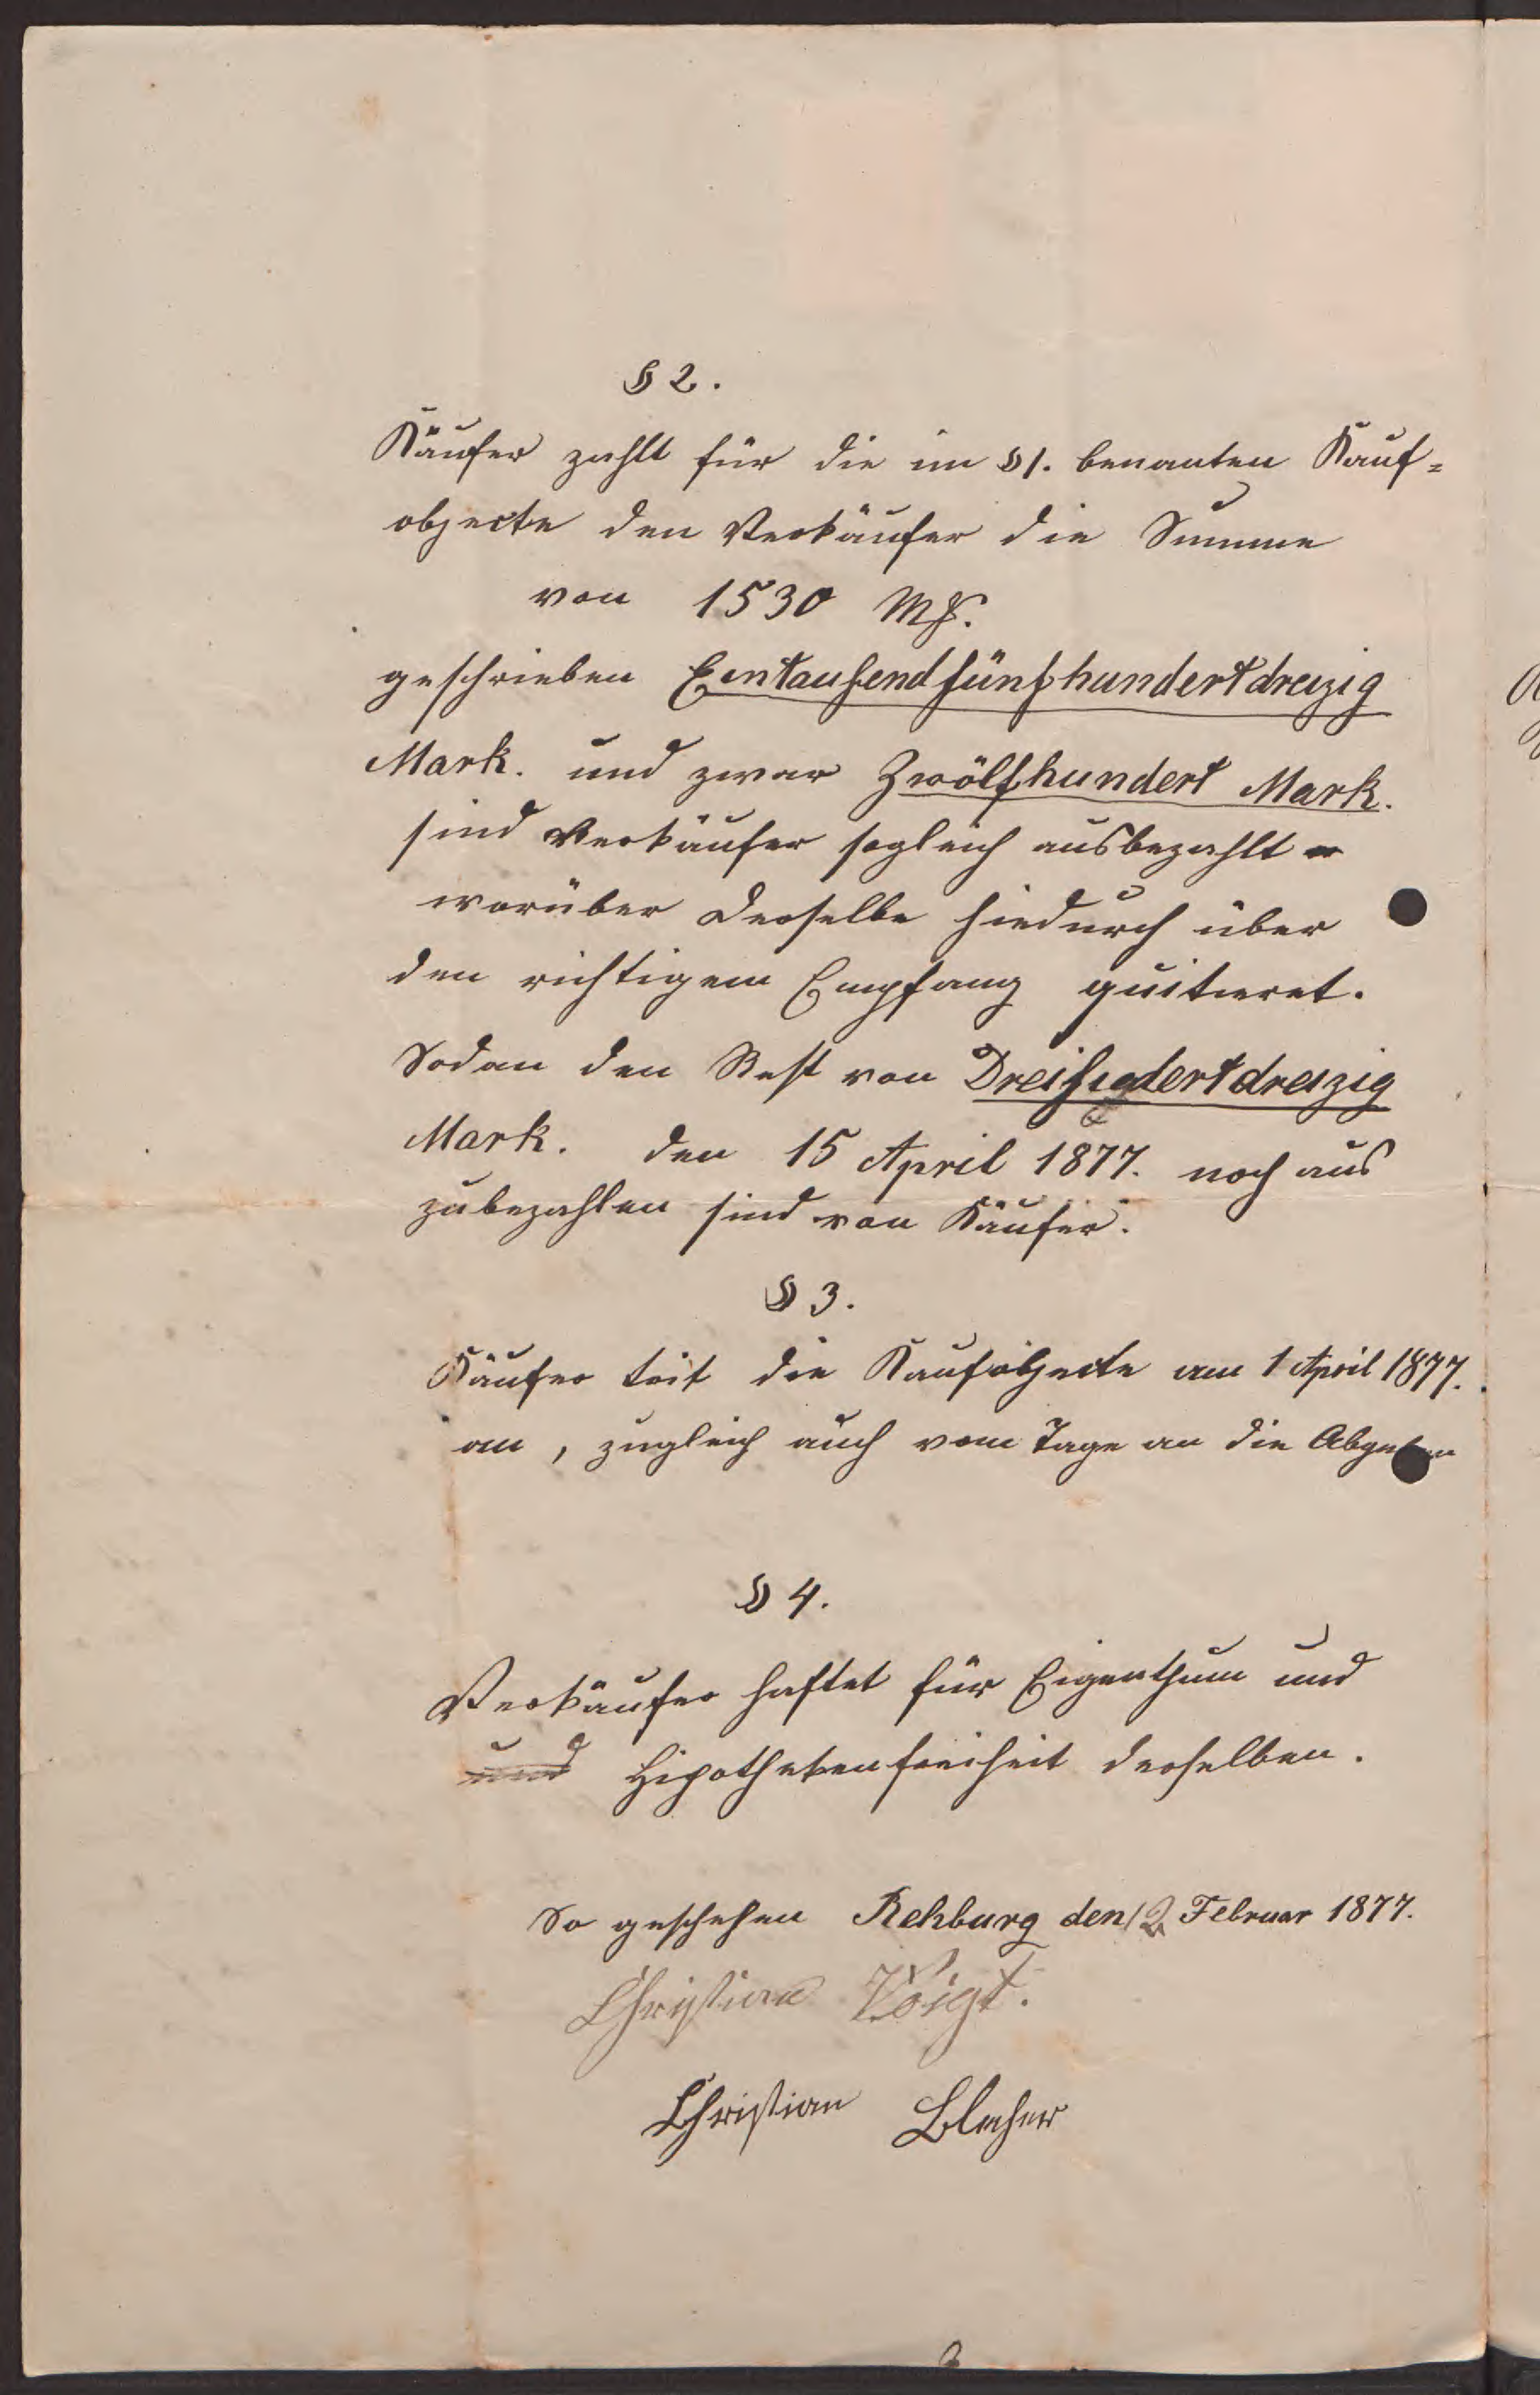 § 2.
Käufer zahlt für die im § 1. benanten Kauf=
objecte den Verkäufer die Summe
von 1530 Mk.
geschrieben Eintausendfünfhundertdreizig
Mark. und zwar Zwölfhundert Mark.
sind Verkäufer sogleich ausbezahlt
worüber derselbe hiedurch über
den richtigem Empfang quitieret.
Sodan den Rest von Dreihudertdreizig
Mark. den 15 April 1877. noch aus
zubezahlen sind von Käufer.
§ 3.
Käufer trit die Kaufobjecte am 1 April 1877.
an, zugleich auch vom Tage an die Abgaben
§ 4.
Verkäufer haftet für Eigenthum und
und Hipothekenfreiheit derselben.
So geschehen Rehburg den 12 Februar 1877.
Christian Voigt.
Christian